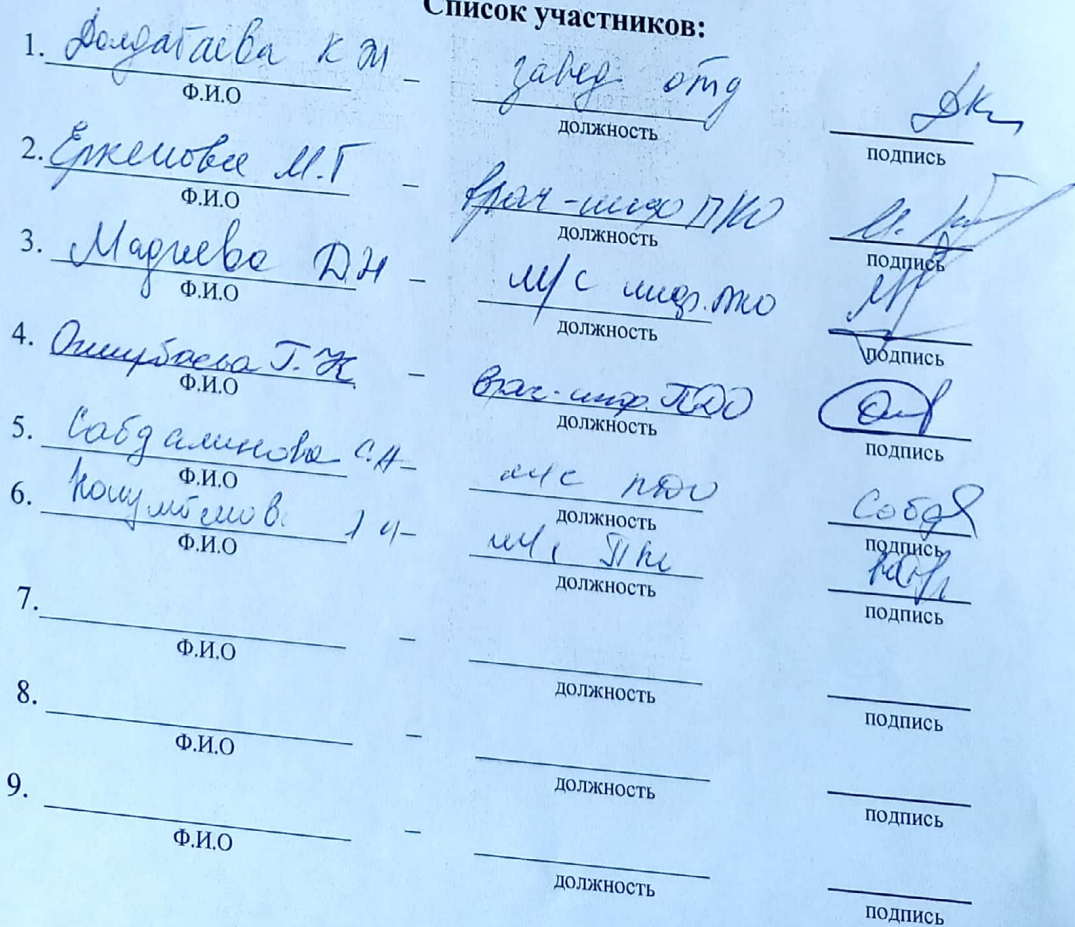 Список участников:
1. Долдатаева К Ж – завед отд
Ф.И.О должность подпись
2. Еркенова М.Г – врач-инф ПКО
Ф.И.О должность подпись
3. Мадиева Д.Н – м/с инф. ПКО
Ф.И.О должность подпись
4. Г.К – врач-инф. ПДО
Ф.И.О должность подпись
5. С.А – м/с ПДО
Ф.И.О должность подпись
6. – м/с
Ф.И.О должность подпись
7. –
Ф.И.О должность подпись
8. –
Ф.И.О должность подпись
9. –
Ф.И.О должность подпись